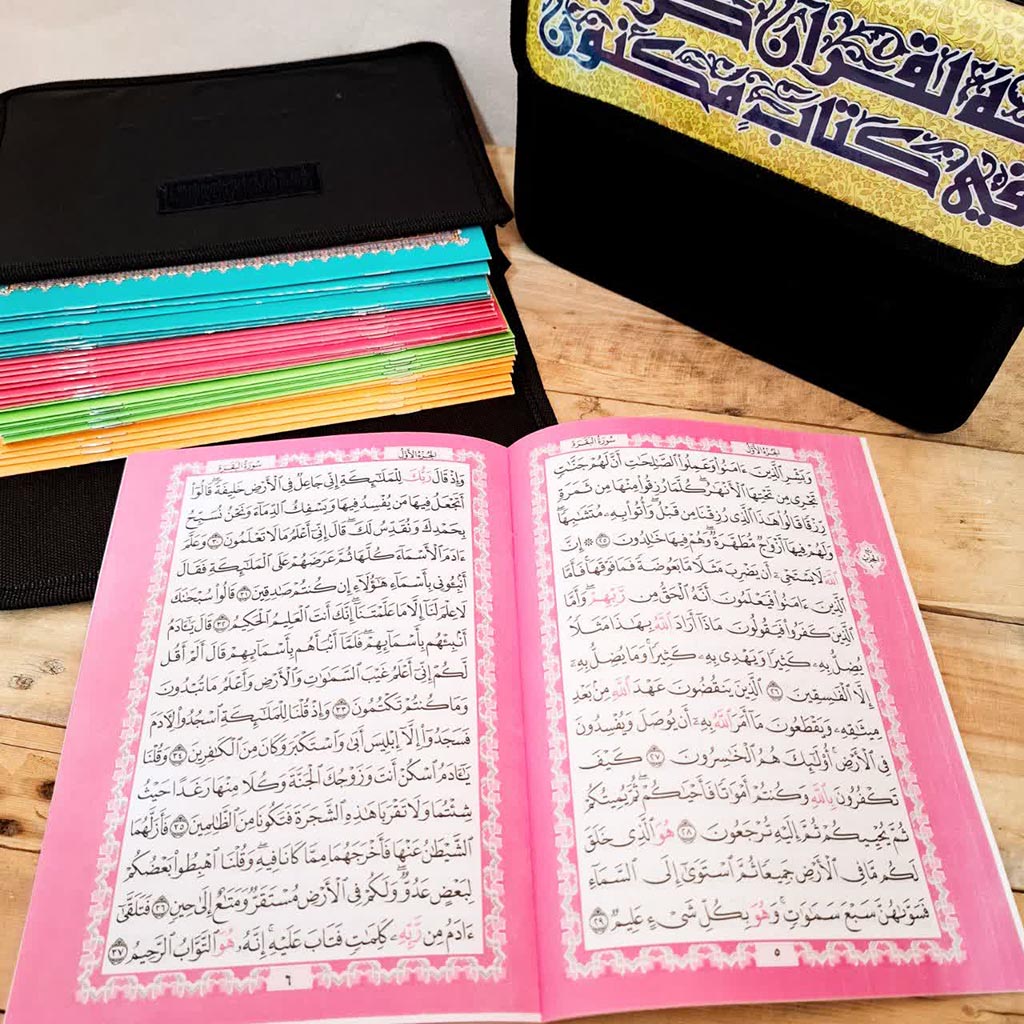 لقرآن كريم
في كتاب مكنون
الجزء الأول
سورة البقرة
وَبَشِّرِ ٱلَّذِينَ ءَامَنُوا۟ وَعَمِلُوا۟ ٱلصَّٰلِحَٰتِ أَنَّ لَهُمْ جَنَّٰتٍ
تَجْرِى مِن تَحْتِهَا ٱلْأَنْهَٰرُ ۖ كُلَّمَا رُزِقُوا۟ مِنْهَا مِن ثَمَرَةٍ
رِّزْقًا ۙ قَالُوا۟ هَٰذَا ٱلَّذِى رُزِقْنَا مِن قَبْلُ ۖ وَأُتُوا۟ بِهِۦ مُتَشَٰبِهًا ۖ
وَلَهُمْ فِيهَآ أَزْوَٰجٌ مُّطَهَّرَةٌ ۖ وَهُمْ فِيهَا خَٰلِدُونَ ٢٥ ۞ إِنَّ
ٱللَّهَ لَا يَسْتَحْىِۦٓ أَن يَضْرِبَ مَثَلًا مَّا بَعُوضَةً فَمَا فَوْقَهَا ۚ فَأَمَّا
ٱلَّذِينَ ءَامَنُوا۟ فَيَعْلَمُونَ أَنَّهُ ٱلْحَقُّ مِن رَّبِّهِمْ ۖ وَأَمَّا
ٱلَّذِينَ كَفَرُوا۟ فَيَقُولُونَ مَاذَآ أَرَادَ ٱللَّهُ بِهَٰذَا مَثَلًا ۘ
يُضِلُّ بِهِۦ كَثِيرًا وَيَهْدِى بِهِۦ كَثِيرًا ۚ وَمَا يُضِلُّ بِهِۦٓ
إِلَّا ٱلْفَٰسِقِينَ ٢٦ ٱلَّذِينَ يَنقُضُونَ عَهْدَ ٱللَّهِ مِنۢ بَعْدِ
مِيثَٰقِهِۦ وَيَقْطَعُونَ مَآ أَمَرَ ٱللَّهُ بِهِۦٓ أَن يُوصَلَ وَيُفْسِدُونَ
فِى ٱلْأَرْضِ ۚ أُو۟لَٰٓئِكَ هُمُ ٱلْخَٰسِرُونَ ٢٧ كَيْفَ
تَكْفُرُونَ بِٱللَّهِ وَكُنتُمْ أَمْوَٰتًا فَأَحْيَٰكُمْ ۖ ثُمَّ يُمِيتُكُمْ
ثُمَّ يُحْيِيكُمْ ثُمَّ إِلَيْهِ تُرْجَعُونَ ٢٨ هُوَ ٱلَّذِى خَلَقَ
لَكُم مَّا فِى ٱلْأَرْضِ جَمِيعًا ثُمَّ ٱسْتَوَىٰٓ إِلَى ٱلسَّمَآءِ
فَسَوَّىٰهُنَّ سَبْعَ سَمَٰوَٰتٍ ۚ وَهُوَ بِكُلِّ شَىْءٍ عَلِيمٌ ٢٩
٥
الجزء الأول
سورة البقرة
وَإِذْ قَالَ رَبُّكَ لِلْمَلَٰٓئِكَةِ إِنِّى جَاعِلٌ فِى ٱلْأَرْضِ خَلِيفَةً ۖ قَالُوٓا۟
أَتَجْعَلُ فِيهَا مَن يُفْسِدُ فِيهَا وَيَسْفِكُ ٱلدِّمَآءَ وَنَحْنُ نُسَبِّحُ
بِحَمْدِكَ وَنُقَدِّسُ لَكَ ۖ قَالَ إِنِّىٓ أَعْلَمُ مَا لَا تَعْلَمُونَ ٣٠ وَعَلَّمَ
ءَادَمَ ٱلْأَسْمَآءَ كُلَّهَا ثُمَّ عَرَضَهُمْ عَلَى ٱلْمَلَٰٓئِكَةِ فَقَالَ
أَنۢبِـُٔونِى بِأَسْمَآءِ هَٰٓؤُلَآءِ إِن كُنتُمْ صَٰدِقِينَ ٣١ قَالُوا۟ سُبْحَٰنَكَ
لَا عِلْمَ لَنَآ إِلَّا مَا عَلَّمْتَنَآ ۖ إِنَّكَ أَنتَ ٱلْعَلِيمُ ٱلْحَكِيمُ ٣٢ قَالَ يَٰٓـَٔادَمُ
أَنۢبِئْهُم بِأَسْمَآئِهِمْ ۖ فَلَمَّآ أَنۢبَأَهُم بِأَسْمَآئِهِمْ قَالَ أَلَمْ أَقُل
لَّكُمْ إِنِّىٓ أَعْلَمُ غَيْبَ ٱلسَّمَٰوَٰتِ وَٱلْأَرْضِ وَأَعْلَمُ مَا تُبْدُونَ
وَمَا كُنتُمْ تَكْتُمُونَ ٣٣ وَإِذْ قُلْنَا لِلْمَلَٰٓئِكَةِ ٱسْجُدُوا۟ لِـَٔادَمَ
فَسَجَدُوٓا۟ إِلَّآ إِبْلِيسَ أَبَىٰ وَٱسْتَكْبَرَ وَكَانَ مِنَ ٱلْكَٰفِرِينَ ٣٤ وَقُلْنَا
يَٰٓـَٔادَمُ ٱسْكُنْ أَنتَ وَزَوْجُكَ ٱلْجَنَّةَ وَكُلَا مِنْهَا رَغَدًا حَيْثُ
شِئْتُمَا وَلَا تَقْرَبَا هَٰذِهِ ٱلشَّجَرَةَ فَتَكُونَا مِنَ ٱلظَّٰلِمِينَ ٣٥ فَأَزَلَّهُمَا
ٱلشَّيْطَٰنُ عَنْهَا فَأَخْرَجَهُمَا مِمَّا كَانَا فِيهِ ۖ وَقُلْنَا ٱهْبِطُوا۟ بَعْضُكُمْ
لِبَعْضٍ عَدُوٌّ ۖ وَلَكُمْ فِى ٱلْأَرْضِ مُسْتَقَرٌّ وَمَتَٰعٌ إِلَىٰ حِينٍ ٣٦ فَتَلَقَّىٰٓ
ءَادَمُ مِن رَّبِّهِۦ كَلِمَٰتٍ فَتَابَ عَلَيْهِ ۚ إِنَّهُۥ هُوَ ٱلتَّوَّابُ ٱلرَّحِيمُ ٣٧
٦